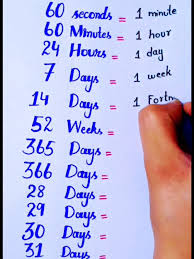 60 seconds = 1 minute
60 Minutes = 1 hour
24 Hours = 1 day
7 Days = 1 week
14 Days = 1 Fortn
52 Weeks =
365 Days =
366 Days =
28 Days =
29 Days =
30 Days =
31 Days =